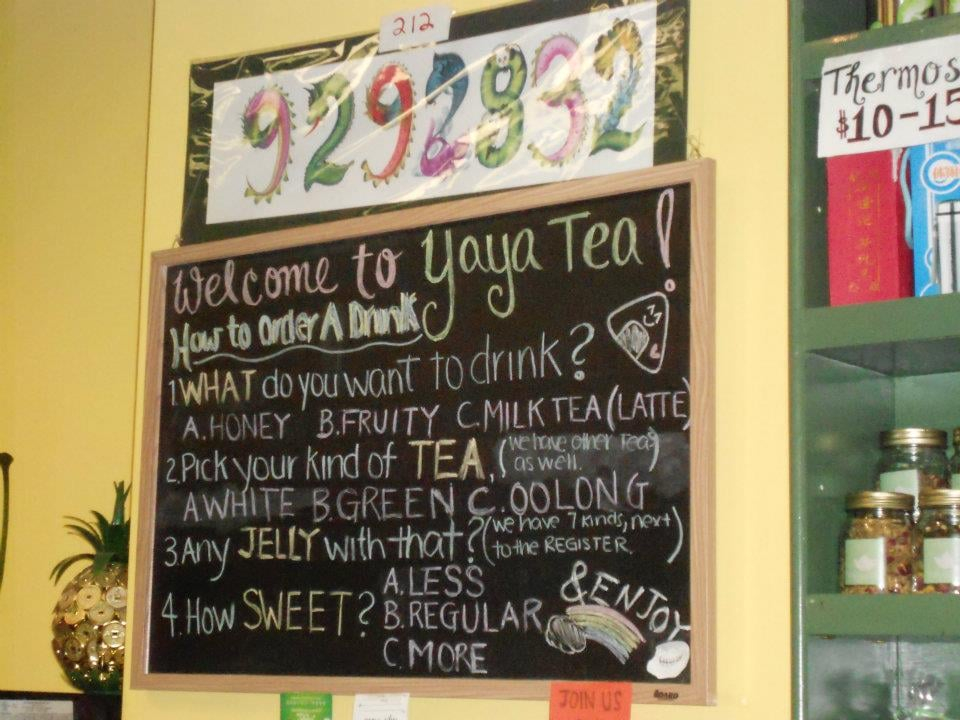 212
9292832
Thermos
$10-15
Welcome to Yaya Tea!
How to Order A Drink
1.WHAT do you want to drink?
A.HONEY B.FRUITY C.MILK TEA (LATTE)
2.Pick your kind of TEA. (we have other teas
as well.)
A WHITE B.GREEN C.OOLONG
3.Any JELLY with that? (we have 7 kinds, next
to the REGISTER.)
4.How SWEET? A.LESS
B.REGULAR
C.MORE
& ENJOY
BOARD
JOIN US